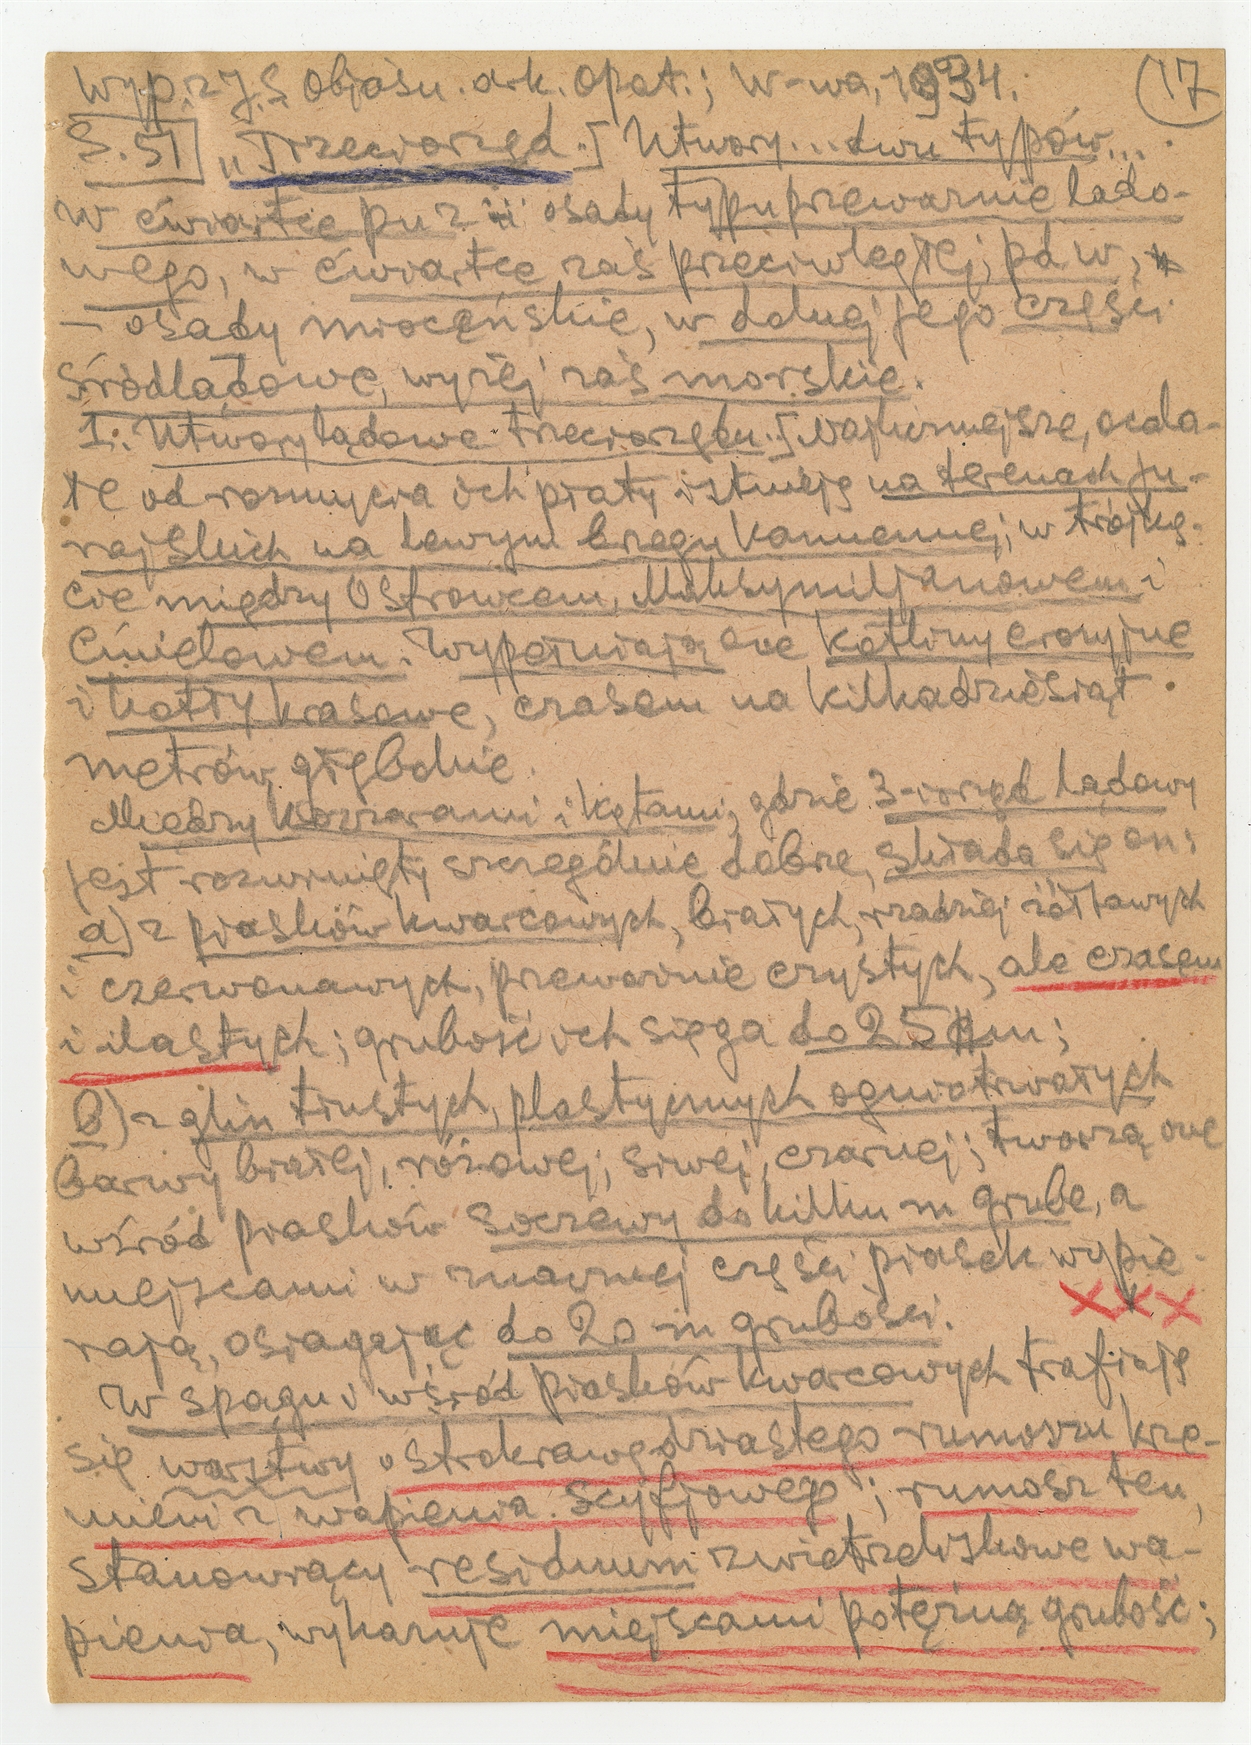 Wyp. z J. S. Objaśn. ark. Opat.; W-wa, 1934. (17
S. 51] „Trzeciorzęd.[ Utwory... dwu typów....
W ćwiartce pn z osady typu przeważnie lądo-
wego, w ćwiartce zaś przeciwległej, pd w,
– osady mioceńskie, w dolnej jego części
śródlądowe, wyżej zaś morskie.
I. Utwory lądowe trzeciorzędu.[ Najliczniejsze, ocala-
łe od rozmycia ich płaty istnieją na terenach ju-
rajskich na lewym brzegu Kamiennej, w trójką-
cie między Ostrowcem, Maksymiljanowem i
Ćmielowem. Wypełniają one kotliny erozyjne
i kotły krasowe, czasem na kilkadziesiąt
metrów głębokie.
Między Koziarami i Kątami, gdzie 3-iorzęd lądowy
jest rozwinięty szczególnie dobrze, składa się on:
a) z piasków kwarcowych, białych, rzadziej żółtawych
i czerwonawych, przeważnie czystych, ale czasem
i ilastych; grubość ich sięga do 25 m;
b) z glin tłustych, plastycznych ogniotrwałych
barwy białej, różowej, siwej, czarnej; tworzą one
wśród piasków soczewy do kilku m grube, a
miejscami w znacznej części piasek wypie-
rają, osiągając do 20 m grubości. xxx
W spągu i wśród piasków kwarcowych trafiają
się warstwy ostrokrawędziastego rumoszu krze-
mieni z wapienia scyfjowego; rumosz ten,
stanowiący residuum zwietrzeliskowe wa-
pienia, wykazuje miejscami potężną grubość;